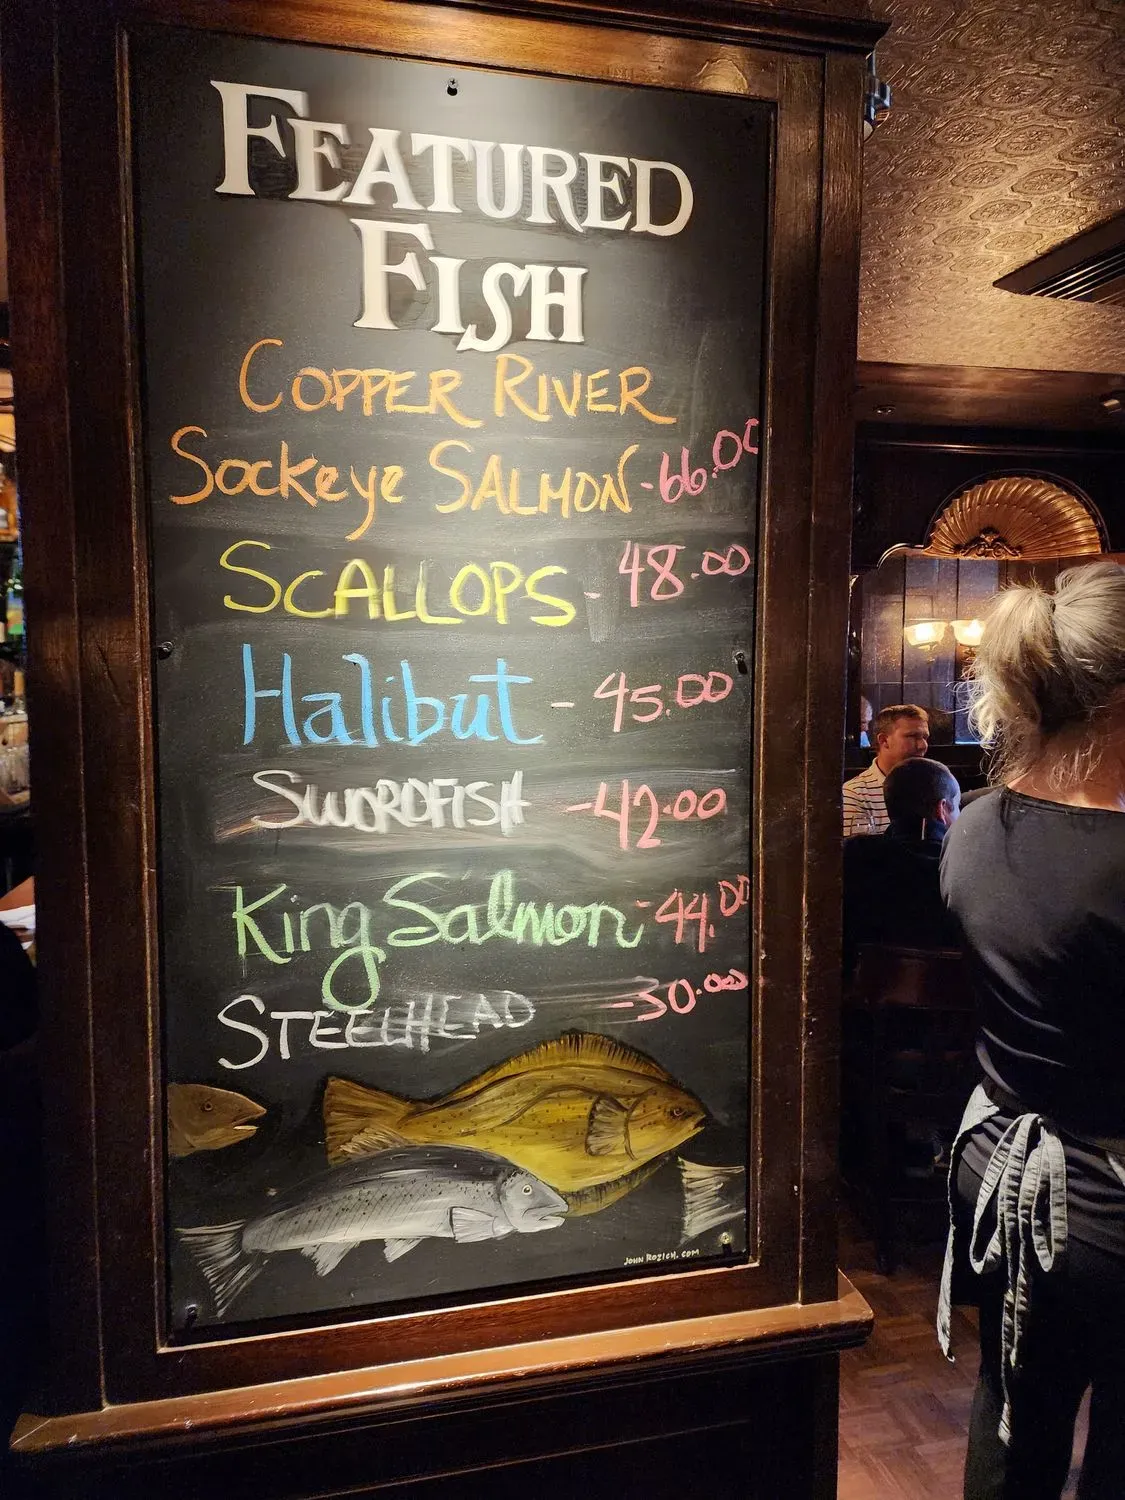 FEATURED
FISH
COPPER RIVER
Sockeye SALMON - 66.00
SCALLOPS - 48.00
Halibut - 45.00
SWORDFISH - 42.00
King Salmon - 44.00
STEELHEAD - 30.00
JOHN ROZICH.COM